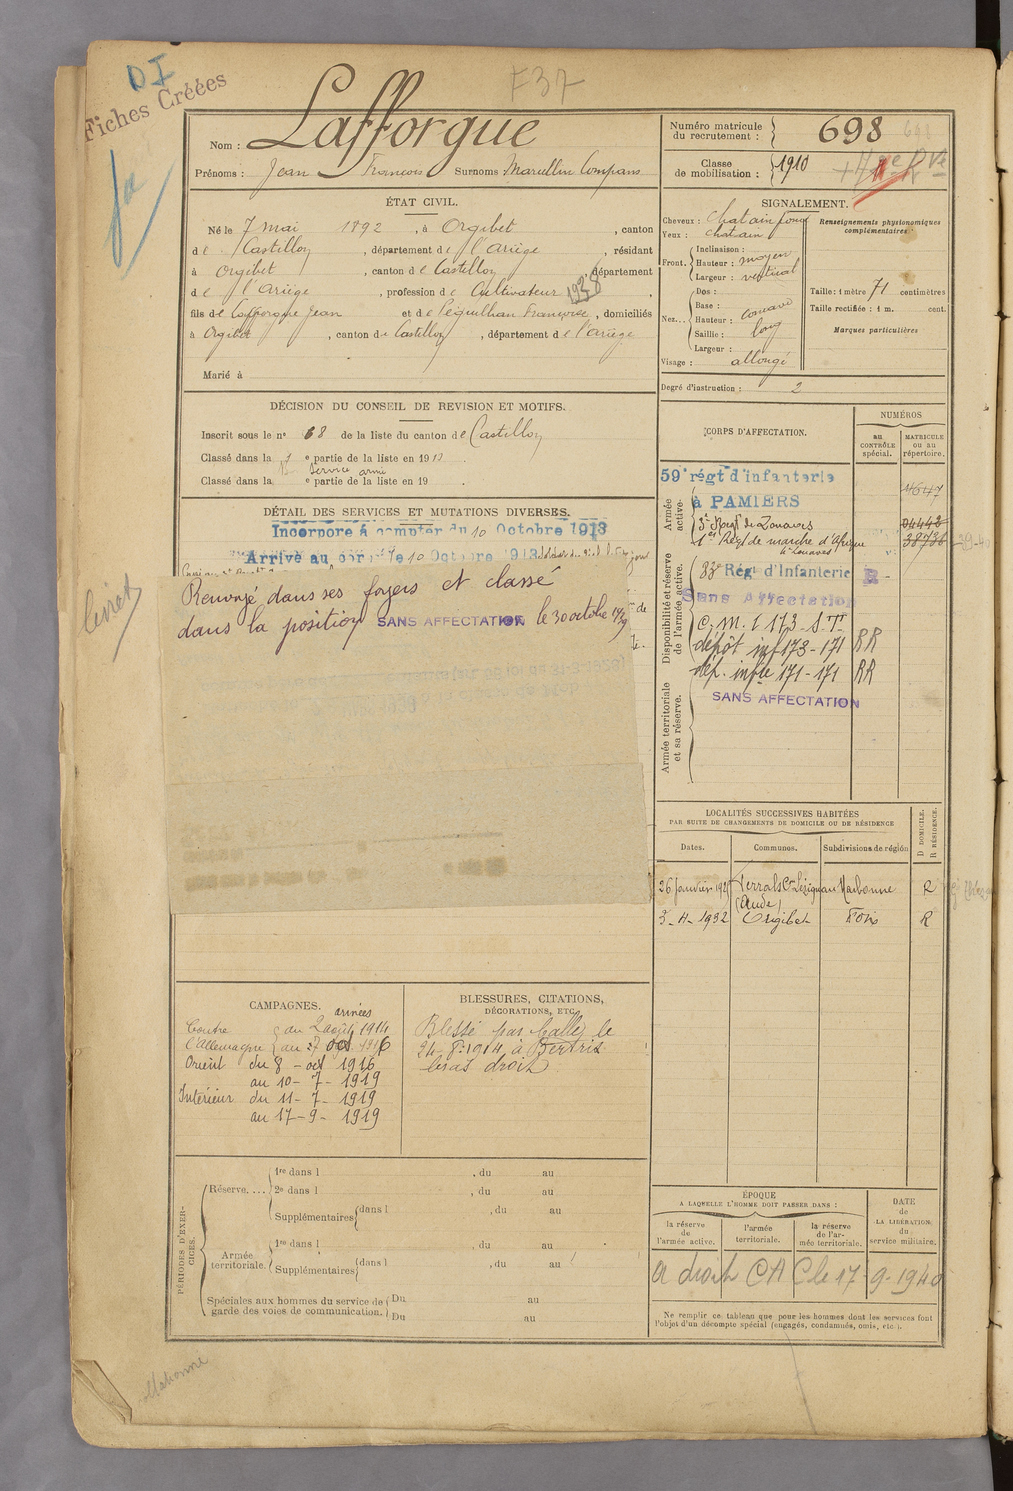 DI
Fiches Créées
F37
Nom : Lafforgue
Prénoms : Jean François Surnoms Marcellin Compans
Numéro matricule du recrutement : 698
Classe de mobilisation : 1910
ÉTAT CIVIL.
Né le 7 mai 1892, à Orgibet, canton
de Castillon, département de l'Ariège, résidant
à Orgibet, canton de Castillon, département
de l'Ariège, profession de Cultivateur 1938,
fils de Lafforgue Jean et de Péguilhan Françoise, domiciliés
à Orgibet, canton de Castillon, département de l'Ariège
Marié à
SIGNALEMENT.
Cheveux : chatain foncé
Yeux : chatain
Front. Inclinaison :
Hauteur : moyen
Largeur : vertical
Nez... Dos :
Base :
Hauteur : concave
Saillie : long
Largeur :
Visage : allongé
Renseignements physionomiques complémentaires :
Taille : 1 mètre 71 centimètres
Taille rectifiée : 1 m. cent.
Marques particulières
Degré d'instruction : 2
DÉCISION DU CONSEIL DE REVISION ET MOTIFS.
Inscrit sous le n° 68 de la liste du canton de Castillon
Classé dans la 1 e partie de la liste en 1913.
Service armé
Classé dans la e partie de la liste en 19 .
DÉTAIL DES SERVICES ET MUTATIONS DIVERSES.
Incorporé à compter du 10 Octobre 1913
Arrivé au corps le 10 Octobre 1913
Renvoyé dans ses foyers et classé
dans la position SANS AFFECTATION le 30 octobre 1939
CORPS D'AFFECTATION.
NUMÉROS
au CONTRÔLE spécial.
MATRICULE ou au répertoire.
Armée active.
59e régt d'infanterie
à PAMIERS 4647
3e Regt de Zouaves 04448
1er Régt de marche d'Afrique 38736
Zouaves
Disponibilité et réserve de l'armée active.
83e Régt d'Infanterie R
Sans Affectation
C. M. I 173 - S.T.
dépôt inf 173 - 171 RR
dép. infie 171 - 171 RR
SANS AFFECTATION
Armée territoriale et sa réserve.
LOCALITÉS SUCCESSIVES HABITÉES
PAR SUITE DE CHANGEMENTS DE DOMICILE OU DE RÉSIDENCE
Dates. Communes. Subdivisions de région D DOMICILE. R RÉSIDENCE.
26 Janvier Ferrals Cn Lézignan Narbonne R
(Aude)
3-4-1932 Orgibet Foix R
CAMPAGNES.
années
Contre l'Allemagne du 2 août 1914
au 27 oct 1916
Orient du 8 - oct 1916
au 10 - 7 - 1919
Intérieur du 11 - 7 - 1919
au 17 - 9 - 1919
BLESSURES, CITATIONS,
DÉCORATIONS, ETC.
Blessé par balle le
24-8-1914, à Bertrix
bras droit
PÉRIODES D'EXERCICES.
Réserve.... 1re dans l , du au
2e dans l , du au
Supplémentaires dans l , du au
Armée territoriale. 1re dans l , du au
Supplémentaires dans l , du au
Spéciales aux hommes du service de garde des voies de communication. Du au
Du au
ÉPOQUE
A LAQUELLE L'HOMME DOIT PASSER DANS :
la réserve de l'armée active. l'armée territoriale. la réserve de l'armée territoriale.
DATE de LA LIBÉRATION du service militaire.
a droit CA C le 17-9-1940
Ne remplir ce tableau que pour les hommes dont les services font l'objet d'un décompte spécial (engagés, condamnés, omis, etc.).
Narbonne